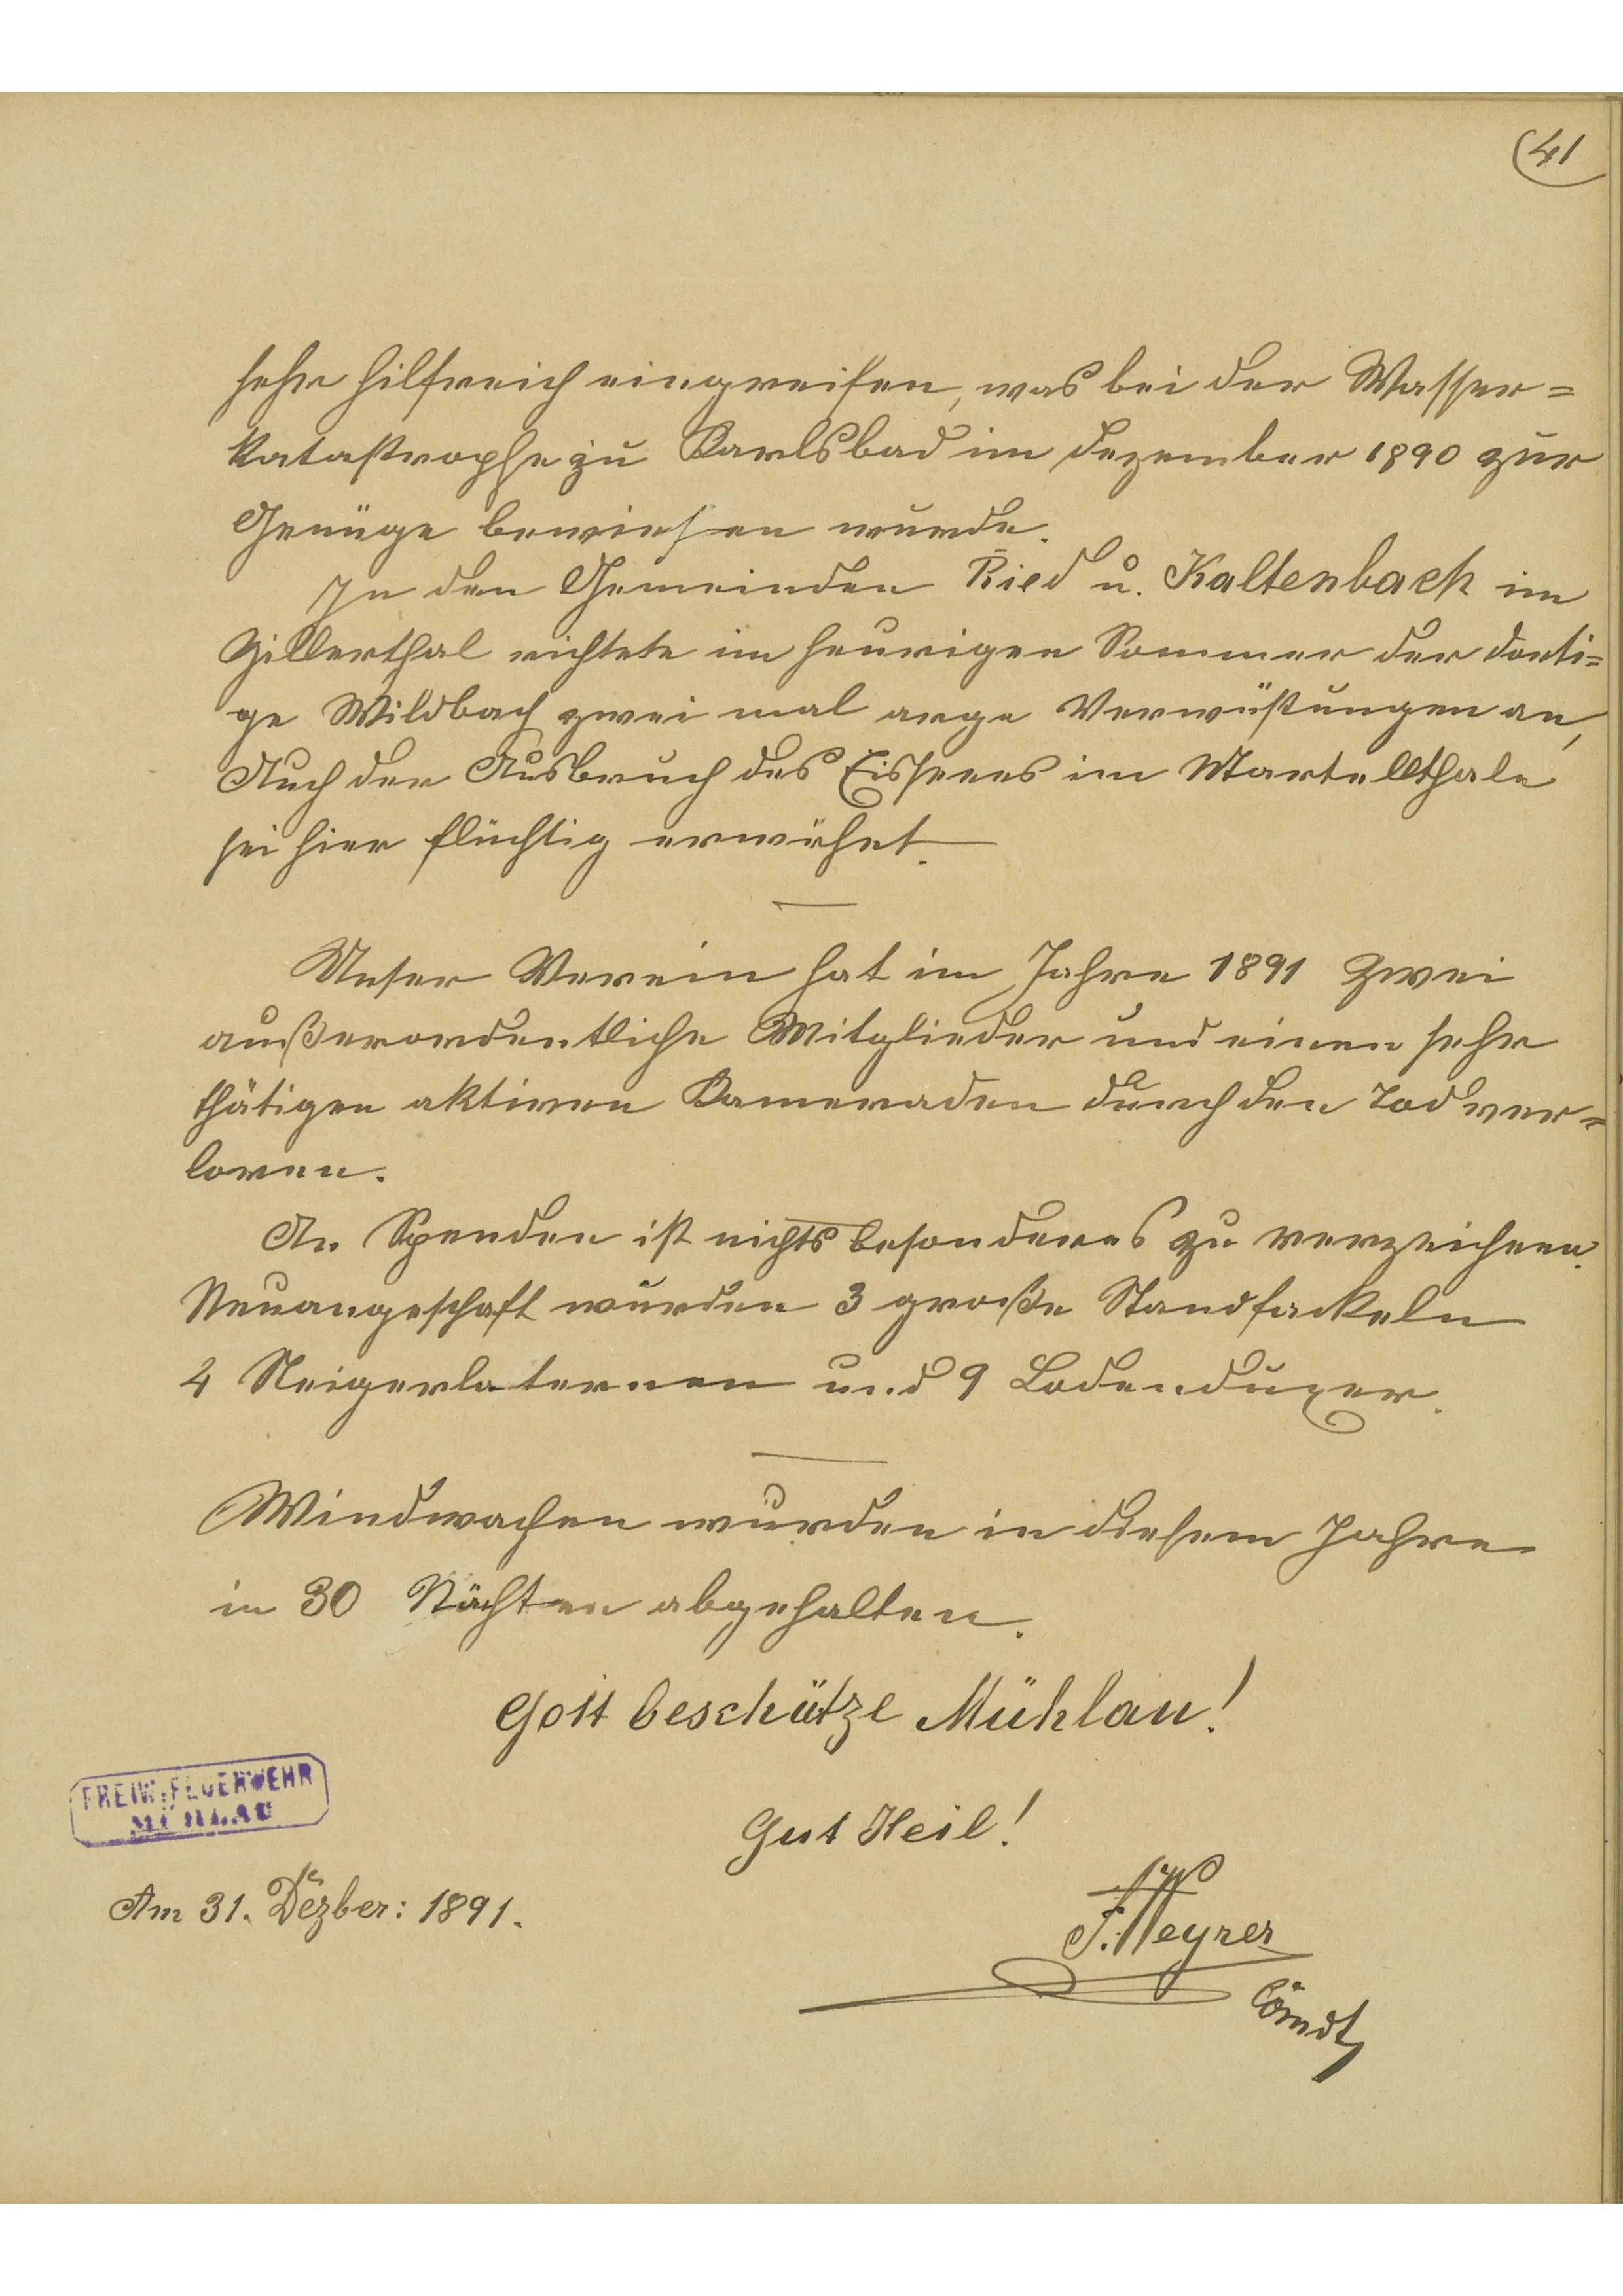 41
sehr hilfreich eingreifen, was bei der Wasser=
katastrophe zu Karlsbad im Dezember 1890 zur
Genüge bewiesen wurde.
In den Gemeinden Ried u. Kaltenbach im
Zillerthal richtete im heurigen Sommer der dorti=
ge Wildbach zwei mal arge Verwüstungen an,
Auch der Ausbruch des Eissees im Martellthale
sei hier flüchtig erwähnt.
Unser Verein hat im Jahre 1891 zwei
außerordentliche Mitglieder und einen sehr
thätigen aktiven Kameraden durch den Tod ver=
loren.
An Spenden ist nichts besonderes zu verzeichnen.
Neuangeschaft wurden 3 große Standfackeln
4 Steigerlaternen und 9 Lodenduxer.
Windwachen wurden in diesem Jahre
in 30 Nächten abgehalten.
Gott beschütze Mühlau!
FREIW. FEUERWEHR
MÜHLAU
Gut Heil!
Am 31. Dezber: 1891.
F. Weyrer
Comdt